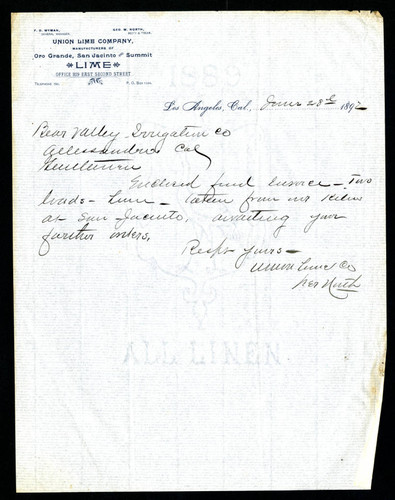 F. H. WYMAN,
GEO. W. NORTH,
UNION LIME COMPANY,
MANUFACTURERS OF
Oro Grande, San Jacinto and Summit
LIME
OFFICE EAST SECOND STREET
TELEPHONE
P. O. BOX
Los Angeles, Cal., June 28th 189
Bear Valley Irrigation Co
Allessandro Cal
Gentlemen
Enclosed find Invoice - Two
loads - Lime - taken from our Kilns
at San Jacinto, awaiting your
further orders,
Respt Yours -
Union Lime Co
per North
1889
ALL LINEN